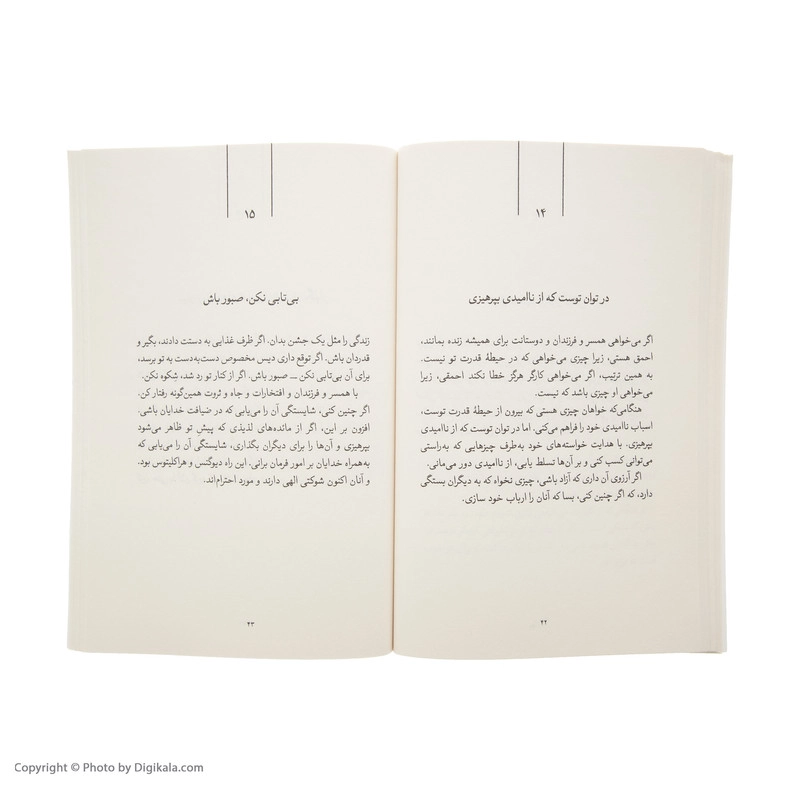 ۱۴
در توان توست که از ناامیدی بپرهیزی
اگر می‌خواهی همسر و فرزندان و دوستانت برای همیشه زنده بمانند،
احمق هستی، زیرا چیزی می‌خواهی که در حیطهٔ قدرت تو نیست.
به همین ترتیب، اگر می‌خواهی کارگر هرگز خطا نکند احمقی، زیرا
می‌خواهی او چیزی باشد که نیست.
هنگامی‌که خواهان چیزی هستی که بیرون از حیطهٔ قدرت توست،
اسباب ناامیدی خود را فراهم می‌کنی. اما در توان توست که از ناامیدی
بپرهیزی. با هدایت خواسته‌های خود به‌طرف چیزهایی که به‌راستی
می‌توانی کسب کنی و بر آن‌ها تسلط یابی، از ناامیدی دور می‌مانی.
اگر آرزوی آن داری که آزاد باشی، چیزی نخواه که به دیگران بستگی
دارد، که اگر چنین کنی، بسا که آنان را ارباب خود سازی.
۲۲
۱۵
بی‌تابی نکن، صبور باش
زندگی را مثل یک جشن بدان. اگر ظرف غذایی به دستت دادند، بگیر و
قدردان باش. اگر توقع داری دیس مخصوص دست‌به‌دست به تو برسد،
برای آن بی‌تابی نکن ـــ صبور باش. اگر از کنار تو رد شد، شِکوه نکن.
با همسر و فرزندان و افتخارات و جاه و ثروت همین‌گونه رفتار کن.
اگر چنین کنی، شایستگی آن را می‌یابی که در ضیافت خدایان باشی.
افزون بر این، اگر از مائده‌های لذیذی که پیشِ تو ظاهر می‌شود
بپرهیزی و آن‌ها را برای دیگران بگذاری، شایستگی آن را می‌یابی که
به‌همراه خدایان بر امور فرمان برانی. این راه دیوگنس و هراکلیتوس بود.
و آنان اکنون شوکتی الهی دارند و مورد احترام‌اند.
۲۳
Copyright © Photo by Digikala.com